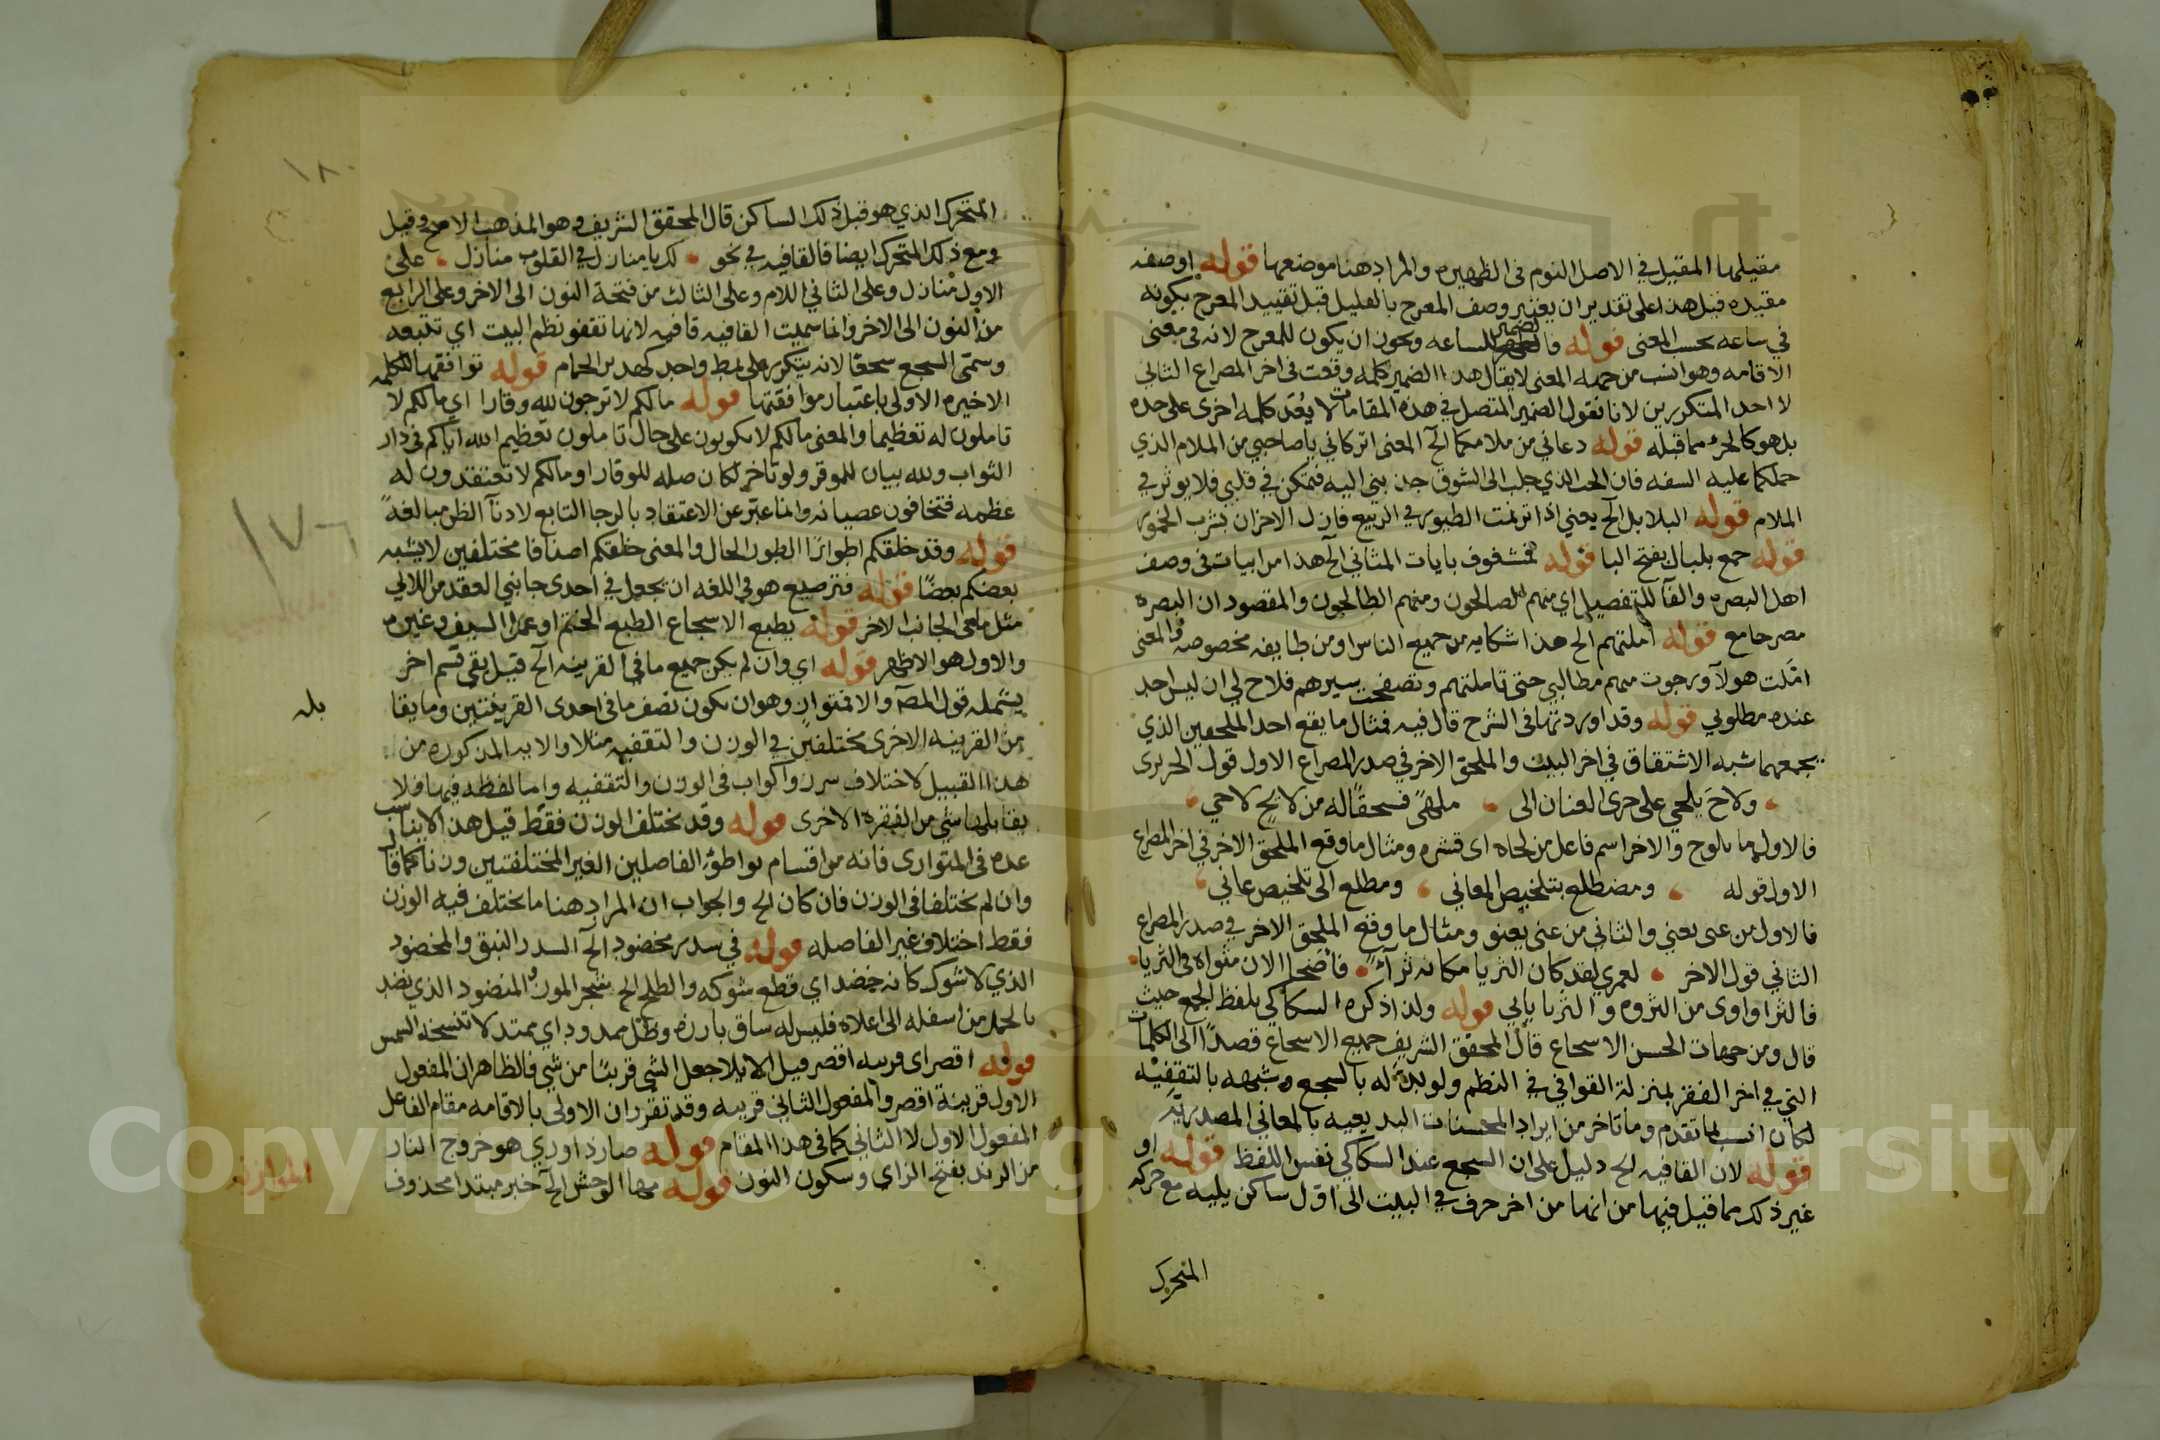 مقيلها المقيل في الاصل النوم فى الظهيره والمراد هنا موضعها قوله او صفه
مقيده قيل هذا على تقدير ان يعتبر وصف المعرج بالقليل قبل تقييد المعرج بكونه
في ساعه بحسب المعنى قوله فالضمير للساعه ويجوز ان يكون للمعرج لانه فى معنى
الاقامه وهو انسب من جهه المعنى لا يقال هذا الضمير كلمه وقعت فى اخر المصراع الثانى
لا احد المتكررين لانا نقول الضمير المتصل في هذه المقامات لا يعد كلمه اخرى على حده
بل هو كالجزء مما قبله قوله دعاني من ملامكما الخ المعنى اتركاني يا صاحبي من الملام الذي
حملكما عليه السفه فان الحب الذي جلب الى الشوق جذبني اليه فتمكن في قلبي فلا يوثر في
الملام قوله البلابل الخ يعني اذا ترنمت الطيور في الربيع فازل الاحزان بشرب الخمور
قوله جمع بلبال بفتح البا قوله فمشغوف بايات المثاني الخ هذا من ابيات فى وصف
اهل البصره والفا للتفصيل اي منهم الصالحون ومنهم الطالحون والمقصود ان البصره
مصر جامع قوله املتهم الخ هذا شكايه من جميع الناس او من طايفه مخصوصه والمعنى
امّلت هولآ ورجوت منهم مطالبي حتى تاملتهم وتصفحت سيرهم فلاح لي ان ليس احد
عنده مطلوبي قوله وقد اوردتها فى الشرح قال فيه فمثال ما يقع احد الملحقين الذي
يجمعهما شبه الاشتقاق في اخر البيت والملحق الاخر في صدر المصراع الاول قول الحريرى
ولاحَ يلحي على جرى العنان الى ملهًى فسحقًا له من لايح لاحي
فالاول ما يلوح والاخر اسم فاعل من لحاه اى قشره ومثال ما وقع الملحق الاخر في اخر المصراع
الاول قوله ومضطلع بتلخيص المعاني ومطلع الى تلخيص عاني
فالاول من عنى يعني والثاني من عنى يعنو ومثال ما وقع الملحق الاخر في صدر المصراع
الثاني قول الاخر لعمري لقد كان الثريا مكانه ثرآءً فأضحى الان مثواه فى الثريا
فالثرا واوى من الثروه والثريا يايي قوله ولذا ذكره السكاكي بلفظ الجمع حيث
قال ومن جهات الحسن الاسجاع قال المحقق الشريف جميع الاسجاع قصدًا الى الكلمات
التي في اخر الفقر بمنزلة القوافي في النظم ولو بدله بالسجع وشبهه بالتقفيه
لكان انسب لما تقدم وما تاخر من ايراد المحسنات البديعيه بالمعاني المصدريه
قوله لان القافيه الخ دليل على ان السجع عند السكاكي نفس اللفظ قوله او
غير ذلك مما قيل فيها من انها من اخر حرف في البيت الى اوّل ساكن يليه مع حركه
المتحرك
١٨٠
المتحرك الذي هو قبل ذلك الساكن قال المحقق الشريف وهو المذهب الاصح وقيل
ومع ذلك المتحرك ايضا فالقافيه في نحو لك يا منازل في القلوب منازل على
الاول منازل وعلى الثاني اللام وعلى الثالث من فتحة النون الى الاخر وعلى الرابع
من النون الى الاخر وانما سميت القافيه قافيه لانها تقفو نظم البيت اي تتبعه
وسمّى السجع سجعًا لانه يتكرر على نمط واحد كهدير الحمام قوله توافقها الكلمه
الاخيره الاولى باعتبار موافقتها قوله مالكم لا ترجون لله وقارا اي مالكم لا
تاملون له تعظيما والمعنى مالكم لا تكونون على حال تاملون تعظيم الله اياكم فى دار
الثواب ولله بيان للموقر ولو تاخر لكان صله للوقار او مالكم لا تعتقدون له
عظمه فتخافون عصيانه وانما عبّر عن الاعتقاد بالرجا التابع لادنآ الظن مبالغهً
قوله وقد خلقكم اطوارًا الطور الحال والمعنى خلقكم اصنافا مختلفين لا يشبه
بعضكم بعضًا قوله فترصيع هو في اللغه ان يجعل في احدى جانبي العقد من اللالي
مثل ما فى الجانب الاخر قوله يطبع الاسجاع الطبع الختم او عمل السيف وغيره
والاول هو الاظهر قوله اي وان لم يكن جميع ما فى القرينه الخ قيل بقى قسم اخر
يشمله قول المصـ والا فمتوازٍ وهو ان يكون نصف ما فى احدى القرينتين وما يقا
بله
من القرينه الاخرى مختلفين في الوزن والتقفيه مثلا والايه المذكوره من
هذا القبيل لاختلاف سرر واكواب فى الوزن والتقفيه واما لفظه فيها فلا
يقابلها شي من الفقره الاخرى قوله وقد يختلف الوزن فقط قيل هذا لا يناسب
عده فى المتوازى فانه من اقسام تواطؤ الفاصلين الغير المختلفتين وزنا كما قال
وان لم يختلفا فى الوزن فان كان الخ والجواب ان المراد هنا ما يختلف فيه الوزن
فقط اختلاف غير الفاصله قوله في سدر مخضود الخ السدر النبق والمخضود
الذي لا شوك كانه خضد اي قطع شوكه والطلح الخ شجر الموز والمنضود الذي نضد
بالحمل من اسفله الى اعلاه فليس له ساق بارزه وظل ممدود اي ممتد لا تنسخه الشمس
قوله اقصر اى قرينه اقصر قيل الا يلا جعل الشى قريبًا من شي فالظاهر ان المفعول
الاول قرينة اقصر والمفعول الثاني قرينه وقد تقرر ان الاولى بالاقامه مقام الفاعل
المفعول الاول لا الثاني كما فى هذا المقام قوله صار ذا وري هو خروج النار
من الزند بفتح الزاي وسكون النون قوله مها الوحش الخ خبر مبتدا محذوف
١٧٦
الموازنه
Copyright © King Saud University